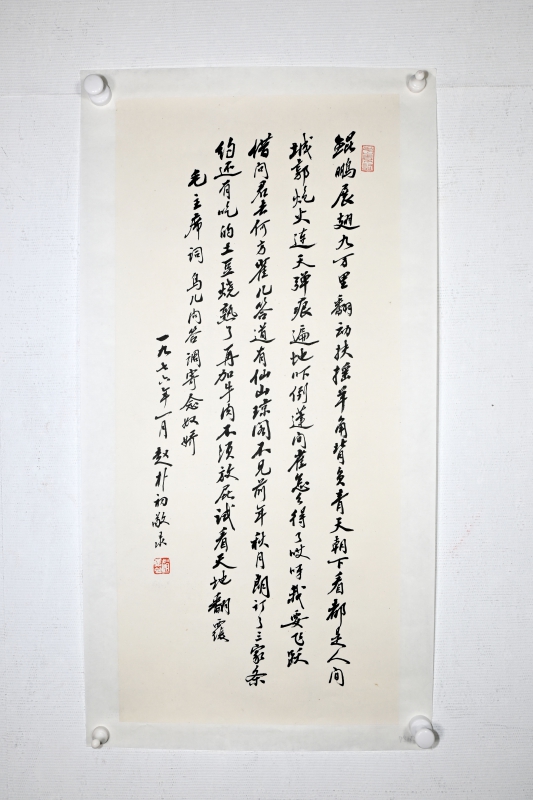 鲲鹏展翅九万里翻动扶摇羊角背负青天朝下看都是人间
城郭炮火连天弹痕遍地吓倒蓬间雀怎么得了哎呀我要飞跃
借问君去何方雀儿答道有仙山琼阁不见前年秋月朗订了三家条
约还有吃的土豆烧熟了再加牛肉不须放屁试看天地翻覆
毛主席词 鸟儿问答 调寄念奴娇
一九七六年一月 赵朴初敬录